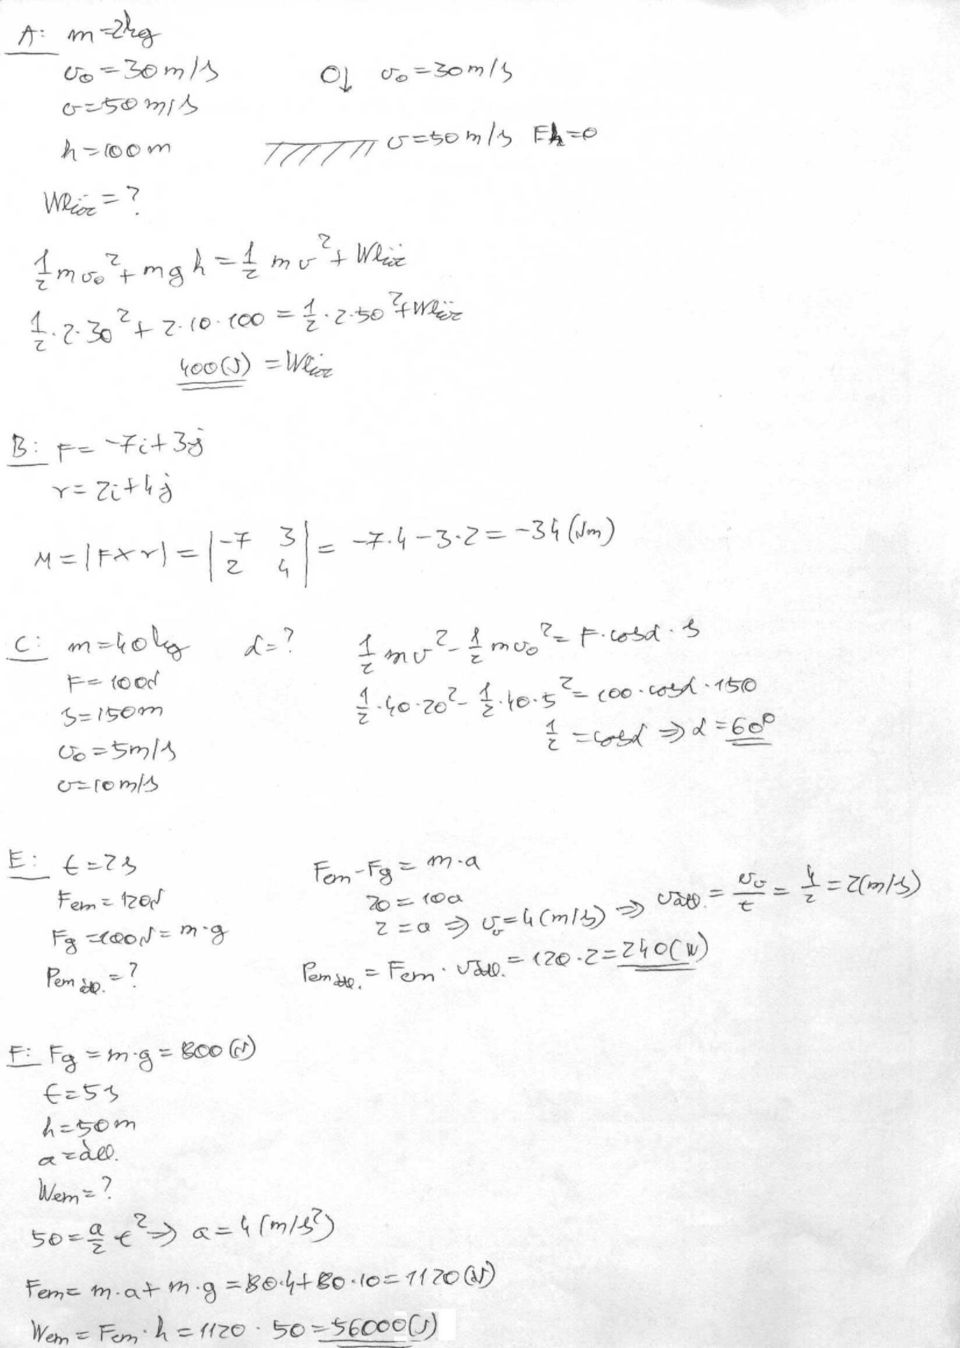 A: m=2kg
v₀=30m/s
v=50m/s
h=100m
v₀=30m/s
v=50m/s Eh=0
Wköz=?
1/2 mv₀²+mgh=1/2 mv²+Wköz
1/2·2·30²+2·10·100=1/2·2·50²+Wköz
400(J)=Wköz
B: F=-7i+3j
r=2i+4j
M=|F×r|=|-7 3; 2 4|=-7·4-3·2=-34(Nm)
C: m=40kg α=?
F=100N
s=150m
v₀=5m/s
v=10m/s
1/2 mv²-1/2 mv₀²=F·cosα·s
1/2·40·20²-1/2·40·5²=100·cosα·150
1/2=cosα⇒α=60°
E: t=2s
Fem=120N
Fg=100N=m·g
Pem átl.=?
Fem-Fg=m·a
20=10a
2=a⇒vᵥ=4(m/s)⇒vátl.=vᵥ/t=4/2=2(m/s)
Pem átl.=Fem·vátl.=120·2=240(W)
F: Fg=m·g=800(N)
t=5s
h=50m
a=áll.
Wem=?
50=a/2 t²⇒a=4(m/s²)
Fem=m·a+m·g=80·4+80·10=1120(N)
Wem=Fem·h=1120·50=56000(J)